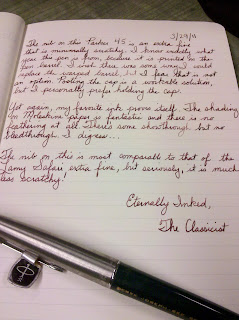 5/29/11
The nib on this Parker 45 is an extra fine
that is minimally scratchy. I know entirely what
year this pen is from, because it is printed on the
pen barrel. I wish there was some way I could
replace the warped barrel, but I fear that is not
an option. Posting the cap is a workable solution,
but I personally prefer holding the cap.
Yet again, my favorite ink proves itself. The shading
on Moleskine paper is fantastic and there is no
feathering at all. There's some showthrough but no
bleedthrough. I digress...
The nib on this is most comparable to that of the
Lamy Safari extra fine, but seriously, it is much
less scratchy!
Eternally Inked,
The Classicist